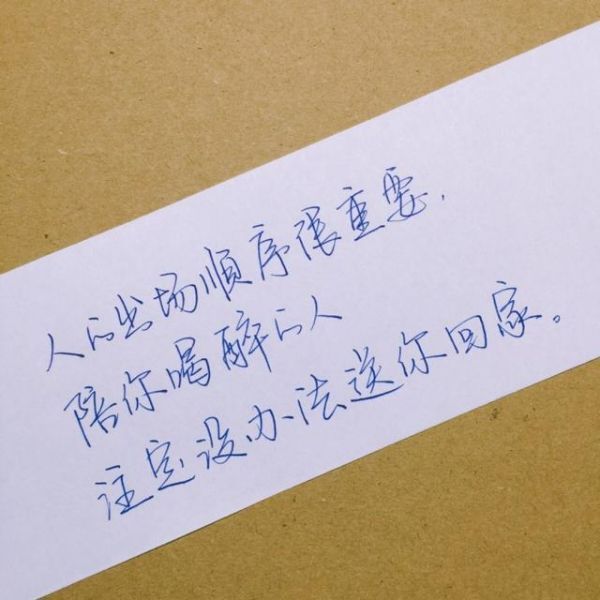 人的出场顺序很重要.
陪你喝醉的人
注定没办法送你回家。